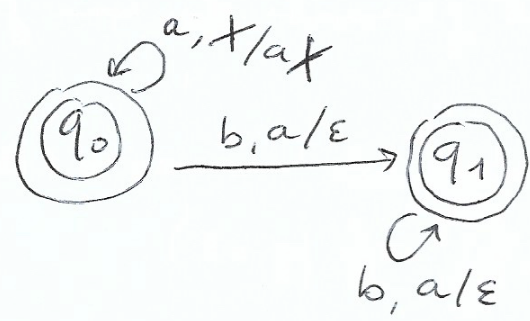 a, X/aX
q₀
b, a/ε
q₁
b, a/ε